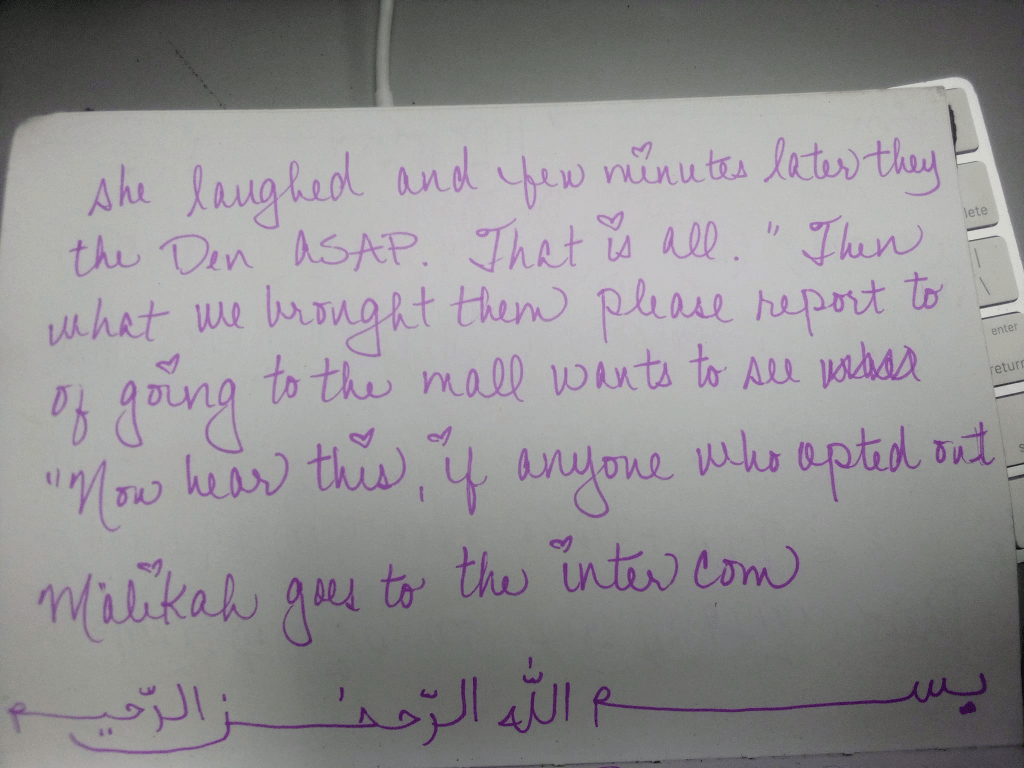 she laughed and few minutes later they
the Den ASAP. That is all." Then
what we brought them please report to
of going to the mall wants to see
"Now hear this, if anyone who opted out
Malikah goes to the intercom
بســـــم اللّٰه الرّحمٰـــن الرّحيــم
lete
|
\
enter
return